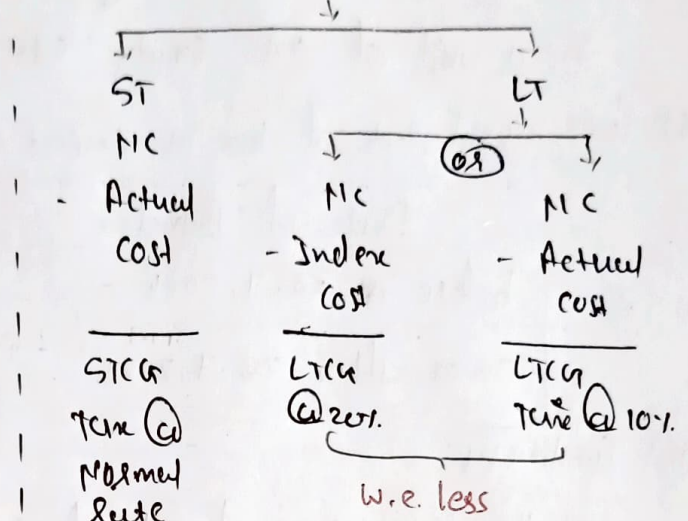 ST
LT
NC
- Actual
Cost
STCG
Tax @
Normal
Rate
or
NC
- Index
Cost
LTCG
@ 20%.
NC
- Actual
Cost
LTCG
Tax @ 10%.
w.e. less